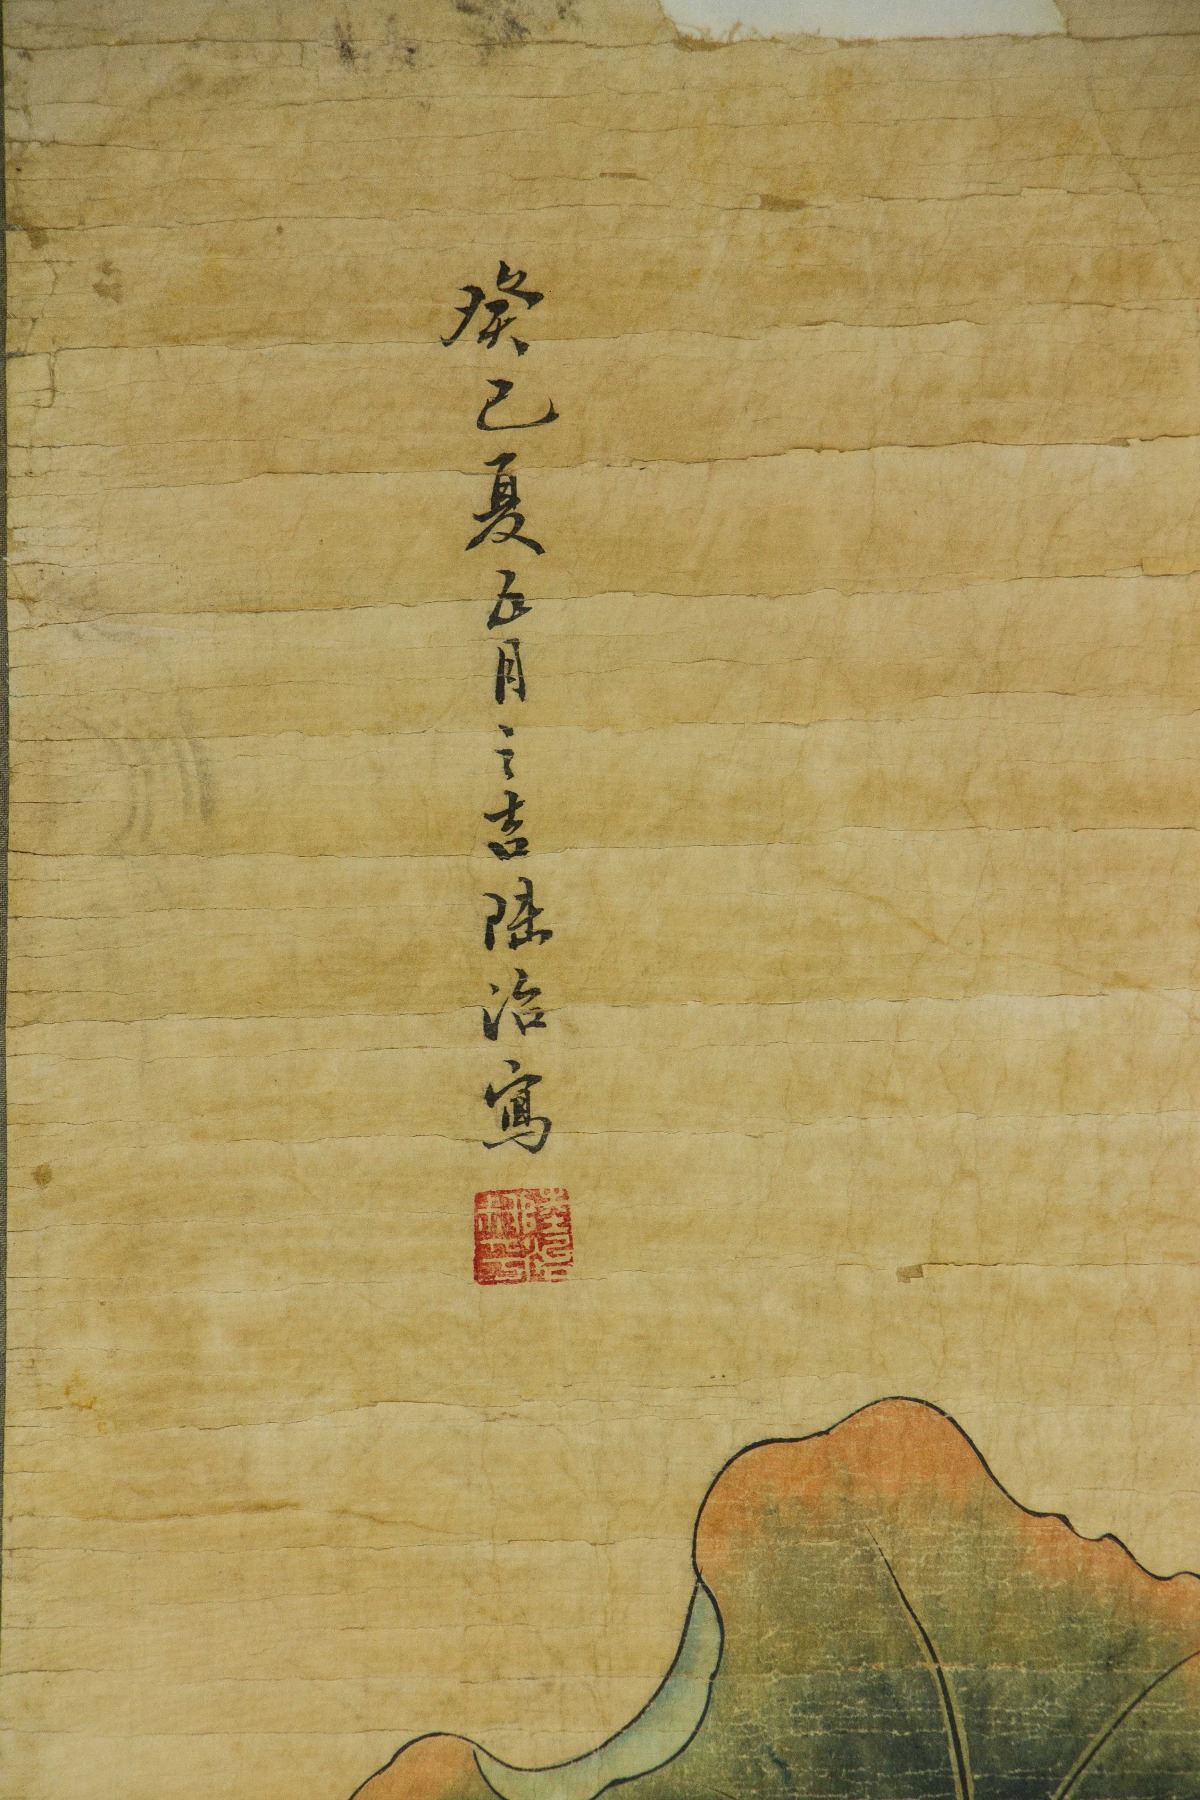 癸巳夏五月之吉陸治寫